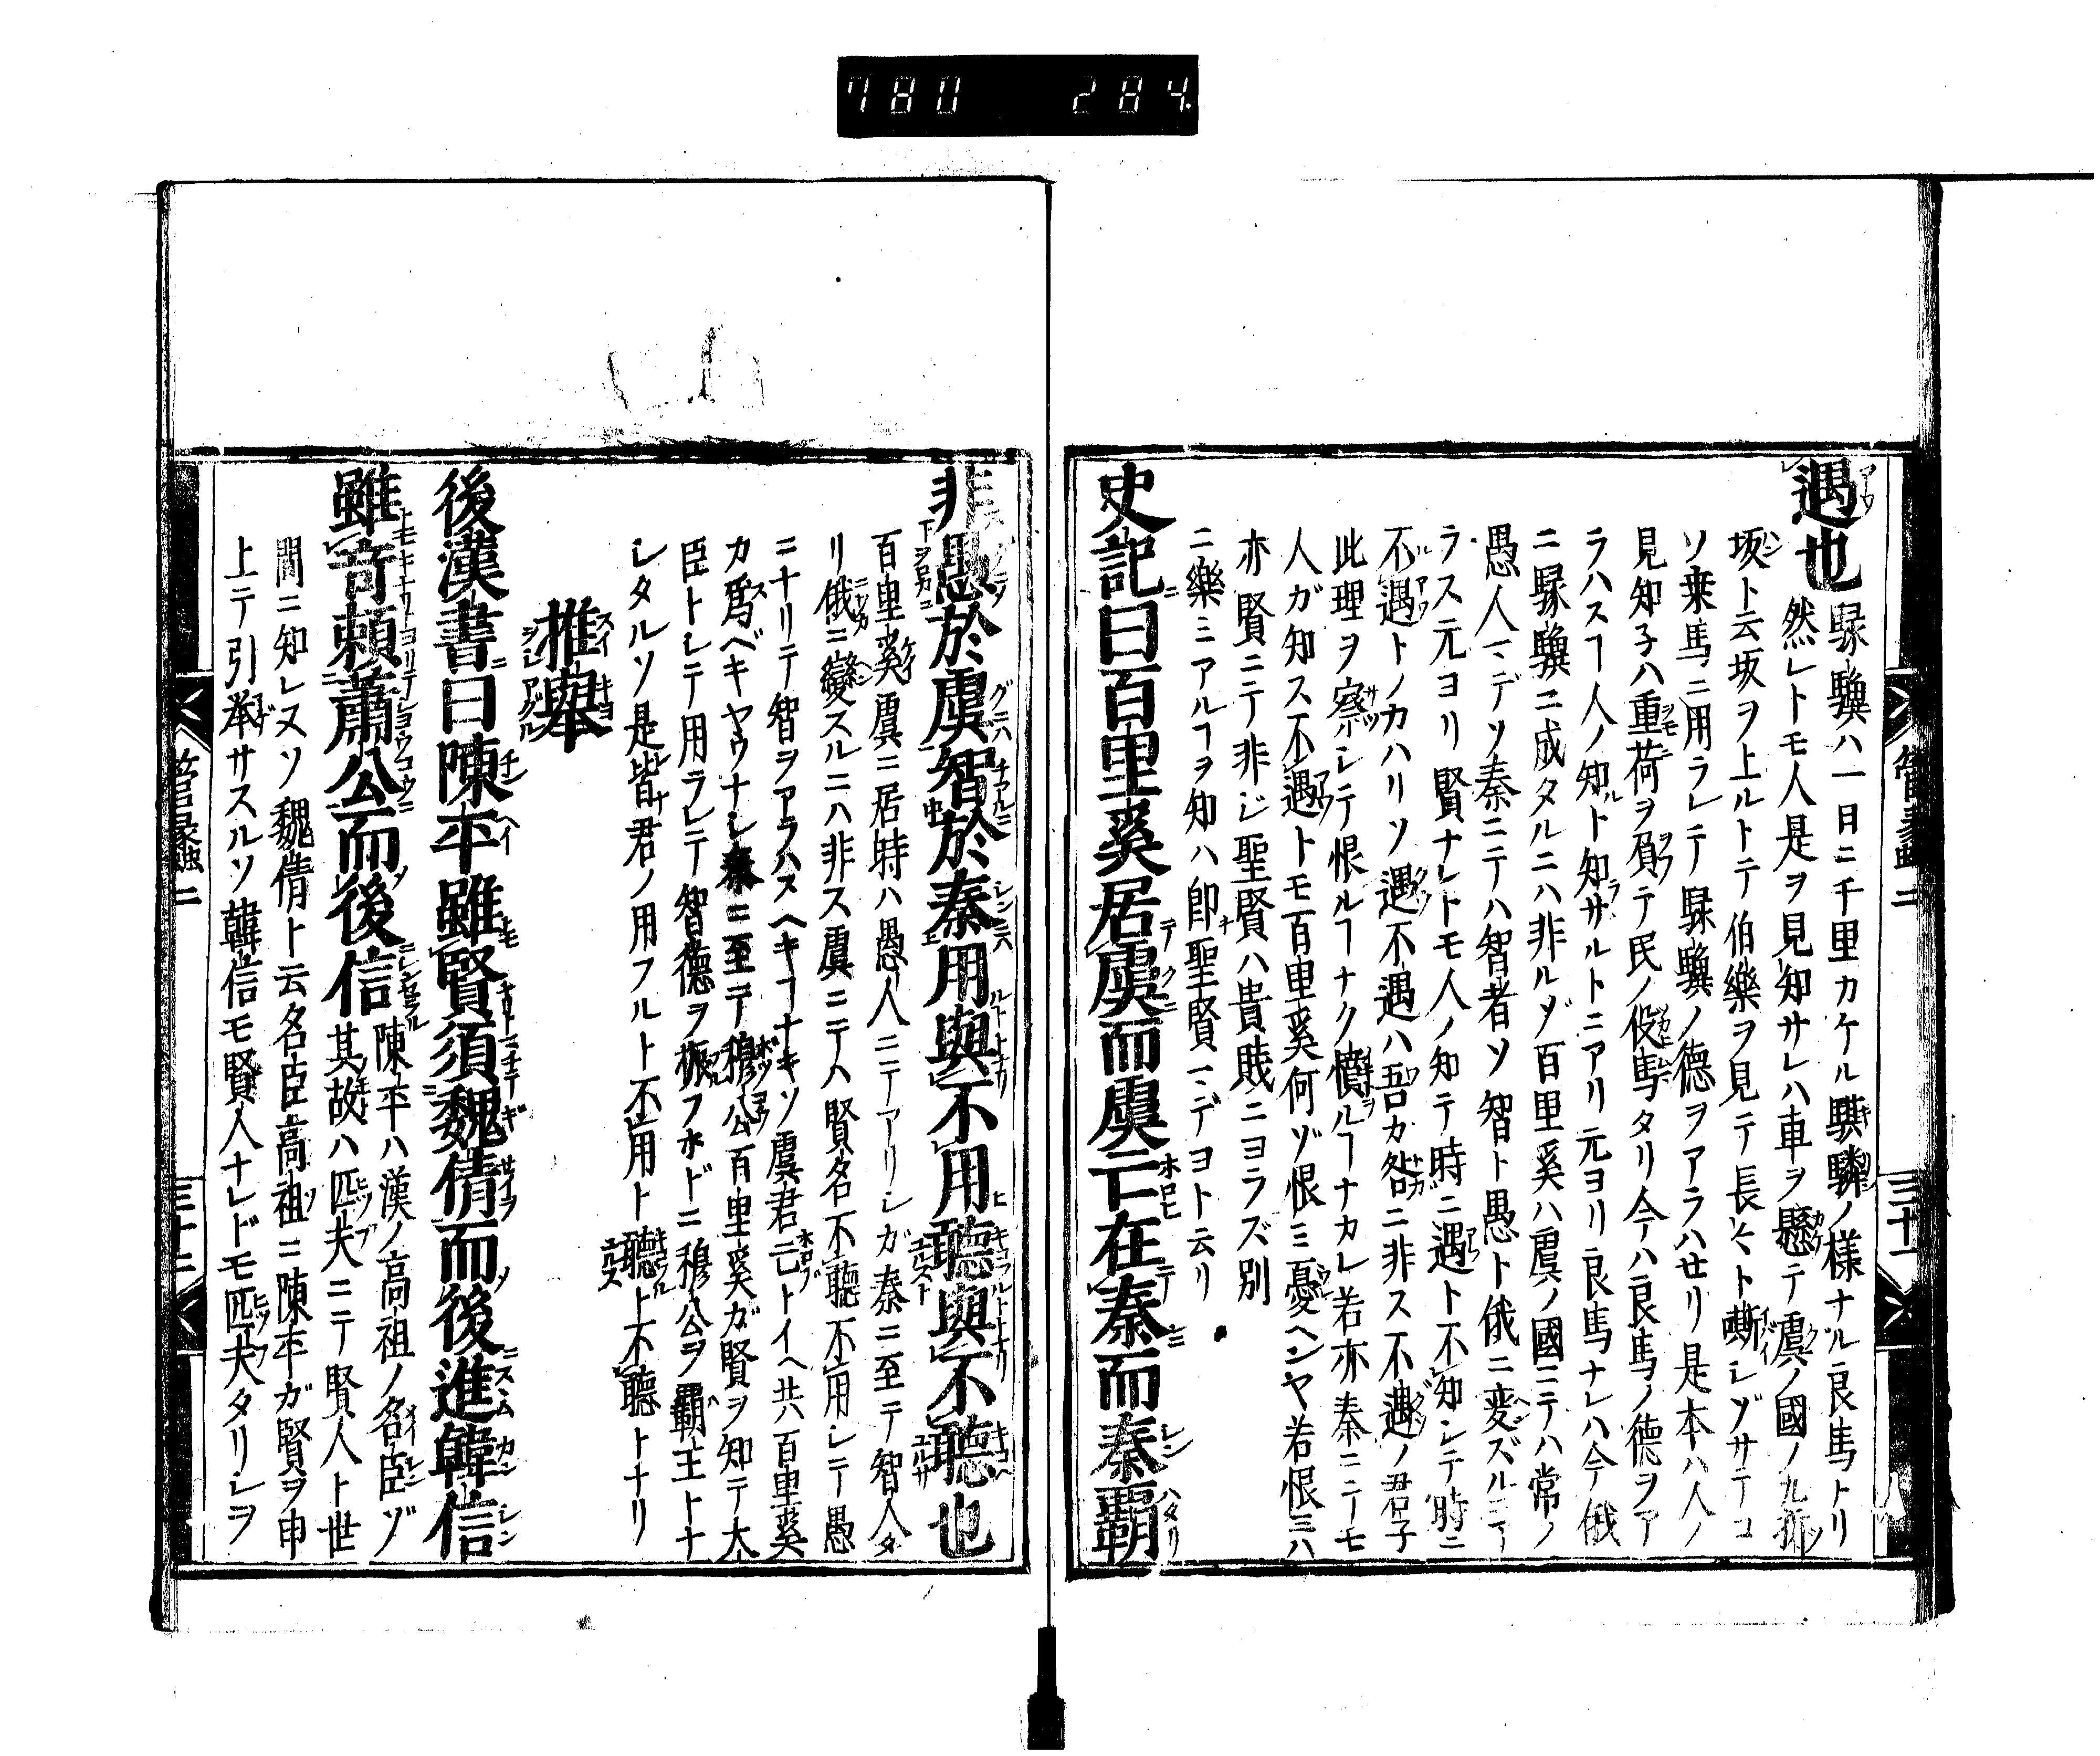 780 284.
管蠡二
三十一
遇也騄驥ハ一日ニ千里カケル騏驎ノ様ナル良馬トリ
然レトモ人是ヲ見知サレハ車ヲ懸テ虞ノ國ノ九折
坂ト云坂ヲ上ルトテ伯樂ヲ見テ長々ト嘶レゾサテコ
ソ乗馬ニ用ラレテ騄驥ノ德ヲアラハせリ是本ハ人ノ
見知子ハ重荷ヲ負テ民ノ役馬タリ今ハ良馬ノ德ヲア
ラハスヿ人ノ知ト知サルトニアリ元ヨリ良馬ナレハ今俄
ニ騄驥ニ成タルニハ非ルゾ百里奚ハ虞ノ國ニテハ常ノ
愚人マデソ秦ニテハ智者ソ智ト愚ト俄ニ変ズルニア
ラス元ヨリ賢ナレトモ人ノ知テ時ニ遇ト不知シテ時ニ
不遇トノカハリソ遇不遇ハ吾カ咎ニ非ス不遇ノ君子
此理ヲ察シテ恨ルヿナク憤ルヿナカレ若亦秦ニテモ
人ガ知ス不遇トモ百里奚何ゾ恨ミ憂ヘンヤ若恨ミハ
亦賢ニテ非ジ聖賢ハ貴賎ニヨラズ別
ニ樂ミアルヿヲ知ハ即聖賢マデヨト云リ
史記曰百里奚居虞而虞亡在秦而秦覇
非愚於虞智於秦用與不用聽與不聽也
百里奚虞ニ居時ハ愚人ニテアリシガ秦ニ至テ智人タ
リ俄ニ變スルニハ非ス虞ニテハ賢名不聽不用シテ愚
ニナリテ智ヲアラハスヘキヿナキソ虞君亡トイヘ共百里奚
カ爲ベキヤウナシ秦ニ至テ穆公百里奚ガ賢ヲ知テ大
臣トシテ用ラレテ智德ヲ振フホドニ穆公ヲ覇主トナ
シタルソ是皆君ノ用フルト不用ト聽ト不聽トナリ
推舉
後漢書曰陳平雖賢須魏倩而後進韓信
雖奇頼蕭公而後信陳平ハ漢ノ高祖ノ名臣ゾ
其故ハ匹夫ニテ賢人ト世
間ニ知レヌソ魏倩ト云名臣高祖ニ陳平ガ賢ヲ申
上テ引挙サスルソ韓信モ賢人ナレドモ匹夫タリシヲ
管蠡二
三十二